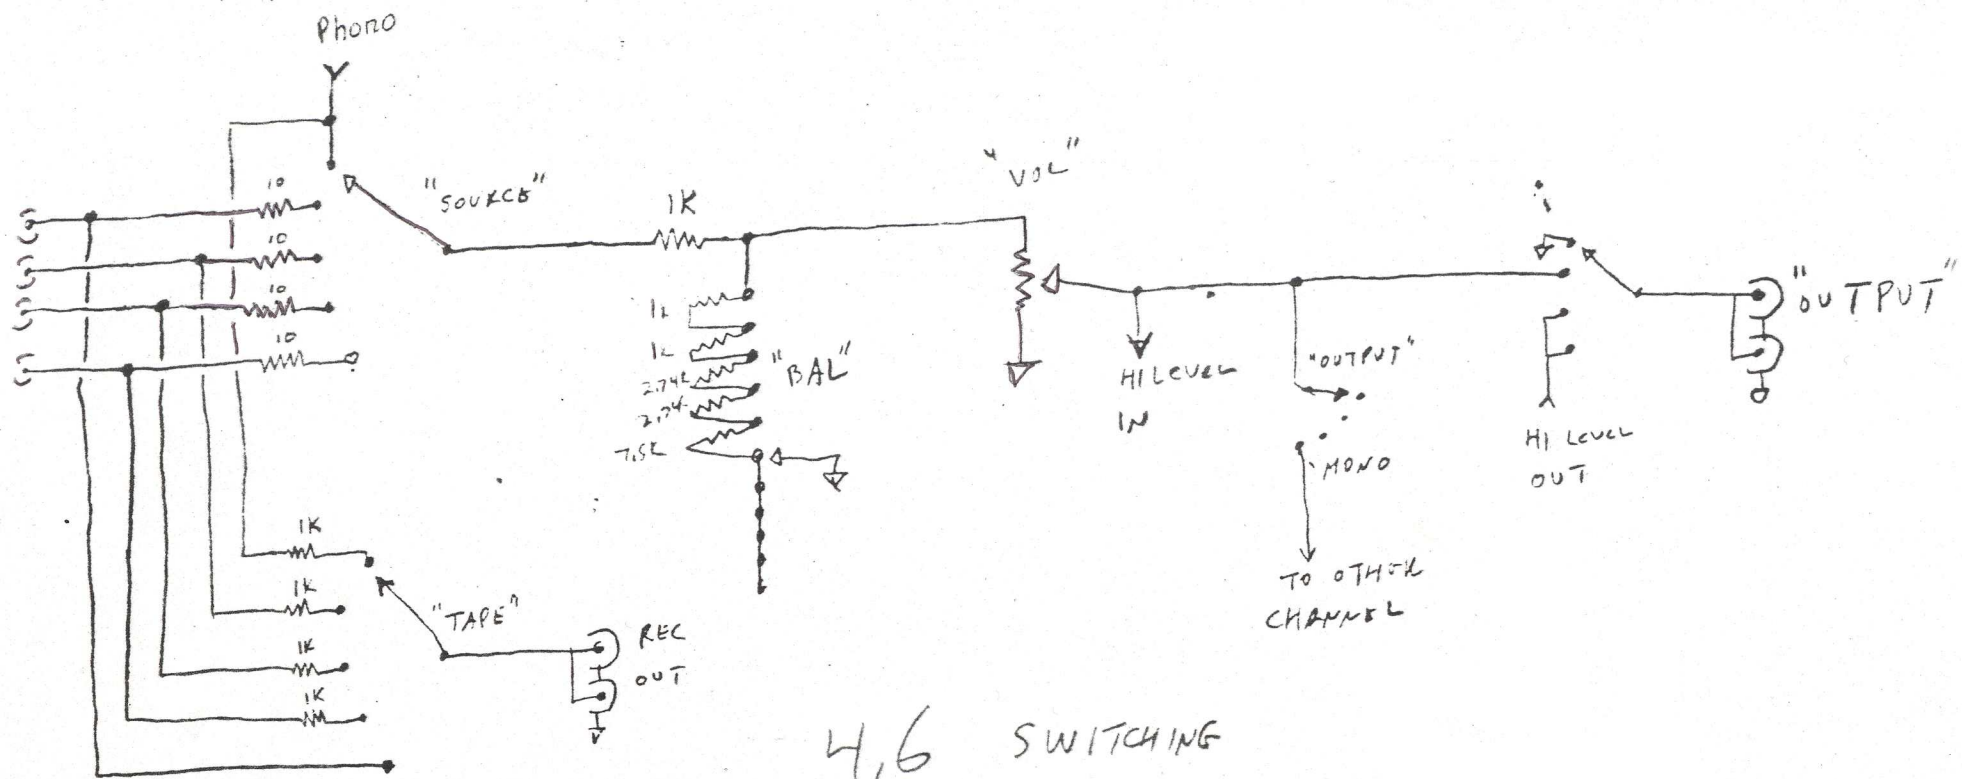 Phono
"SOURCE"
10
10
10
10
1K
1K
1K
2.74K
2.74
7.5K
"BAL"
"VOL"
HI LEVEL
IN
"OUTPUT"
MONO
TO OTHER
CHANNEL
HI LEVEL
OUT
"OUTPUT"
1K
1K
1K
1K
"TAPE"
REC
OUT
4,6 SWITCHING